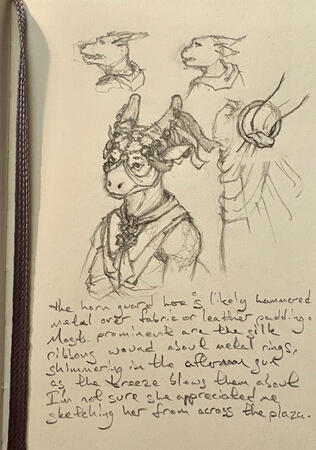 the horn guard here's likely hammered
metal over fabric or leather padding.
Most prominent are the silk
ribbons wound about metal rings,
shimmering in the afternoon sun
as the breeze blows them about
I'm not sure she appreciated me
sketching her from across the plaza.